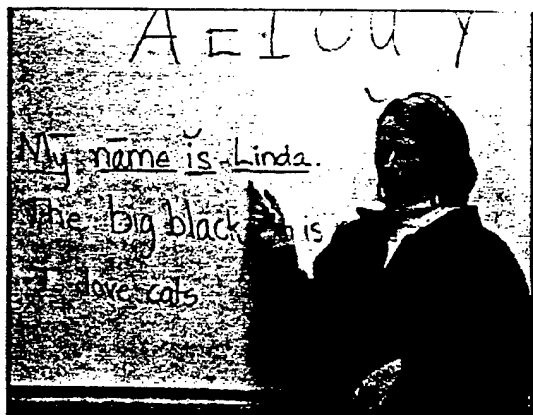 A E I O U Y
My name is Linda.
The big black is
I love cats